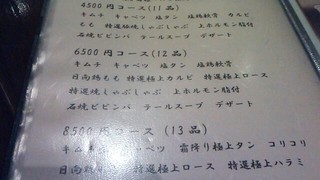 4500円コース(11品)
キムチ キャベツ 塩タン 塩鶏軟骨 カルビ
もも 特選極上焼しゃぶしゃぶ 上ホルモン脂付
石焼ビビンバ テールスープ デザート
6500円コース(12品)
キムチ キャベツ 塩タン 塩鶏軟骨
日向鶏もも キモ 特選極上カルビ 特選極上ロース
特選焼しゃぶしゃぶ 上ホルモン脂付
石焼ビビンバ テールスープ デザート
8500円コース(13品)
キムチ キャベツ 霜降り極上タン コリコリ
日向鶏 特選極上ロース 特選極上ハラミ